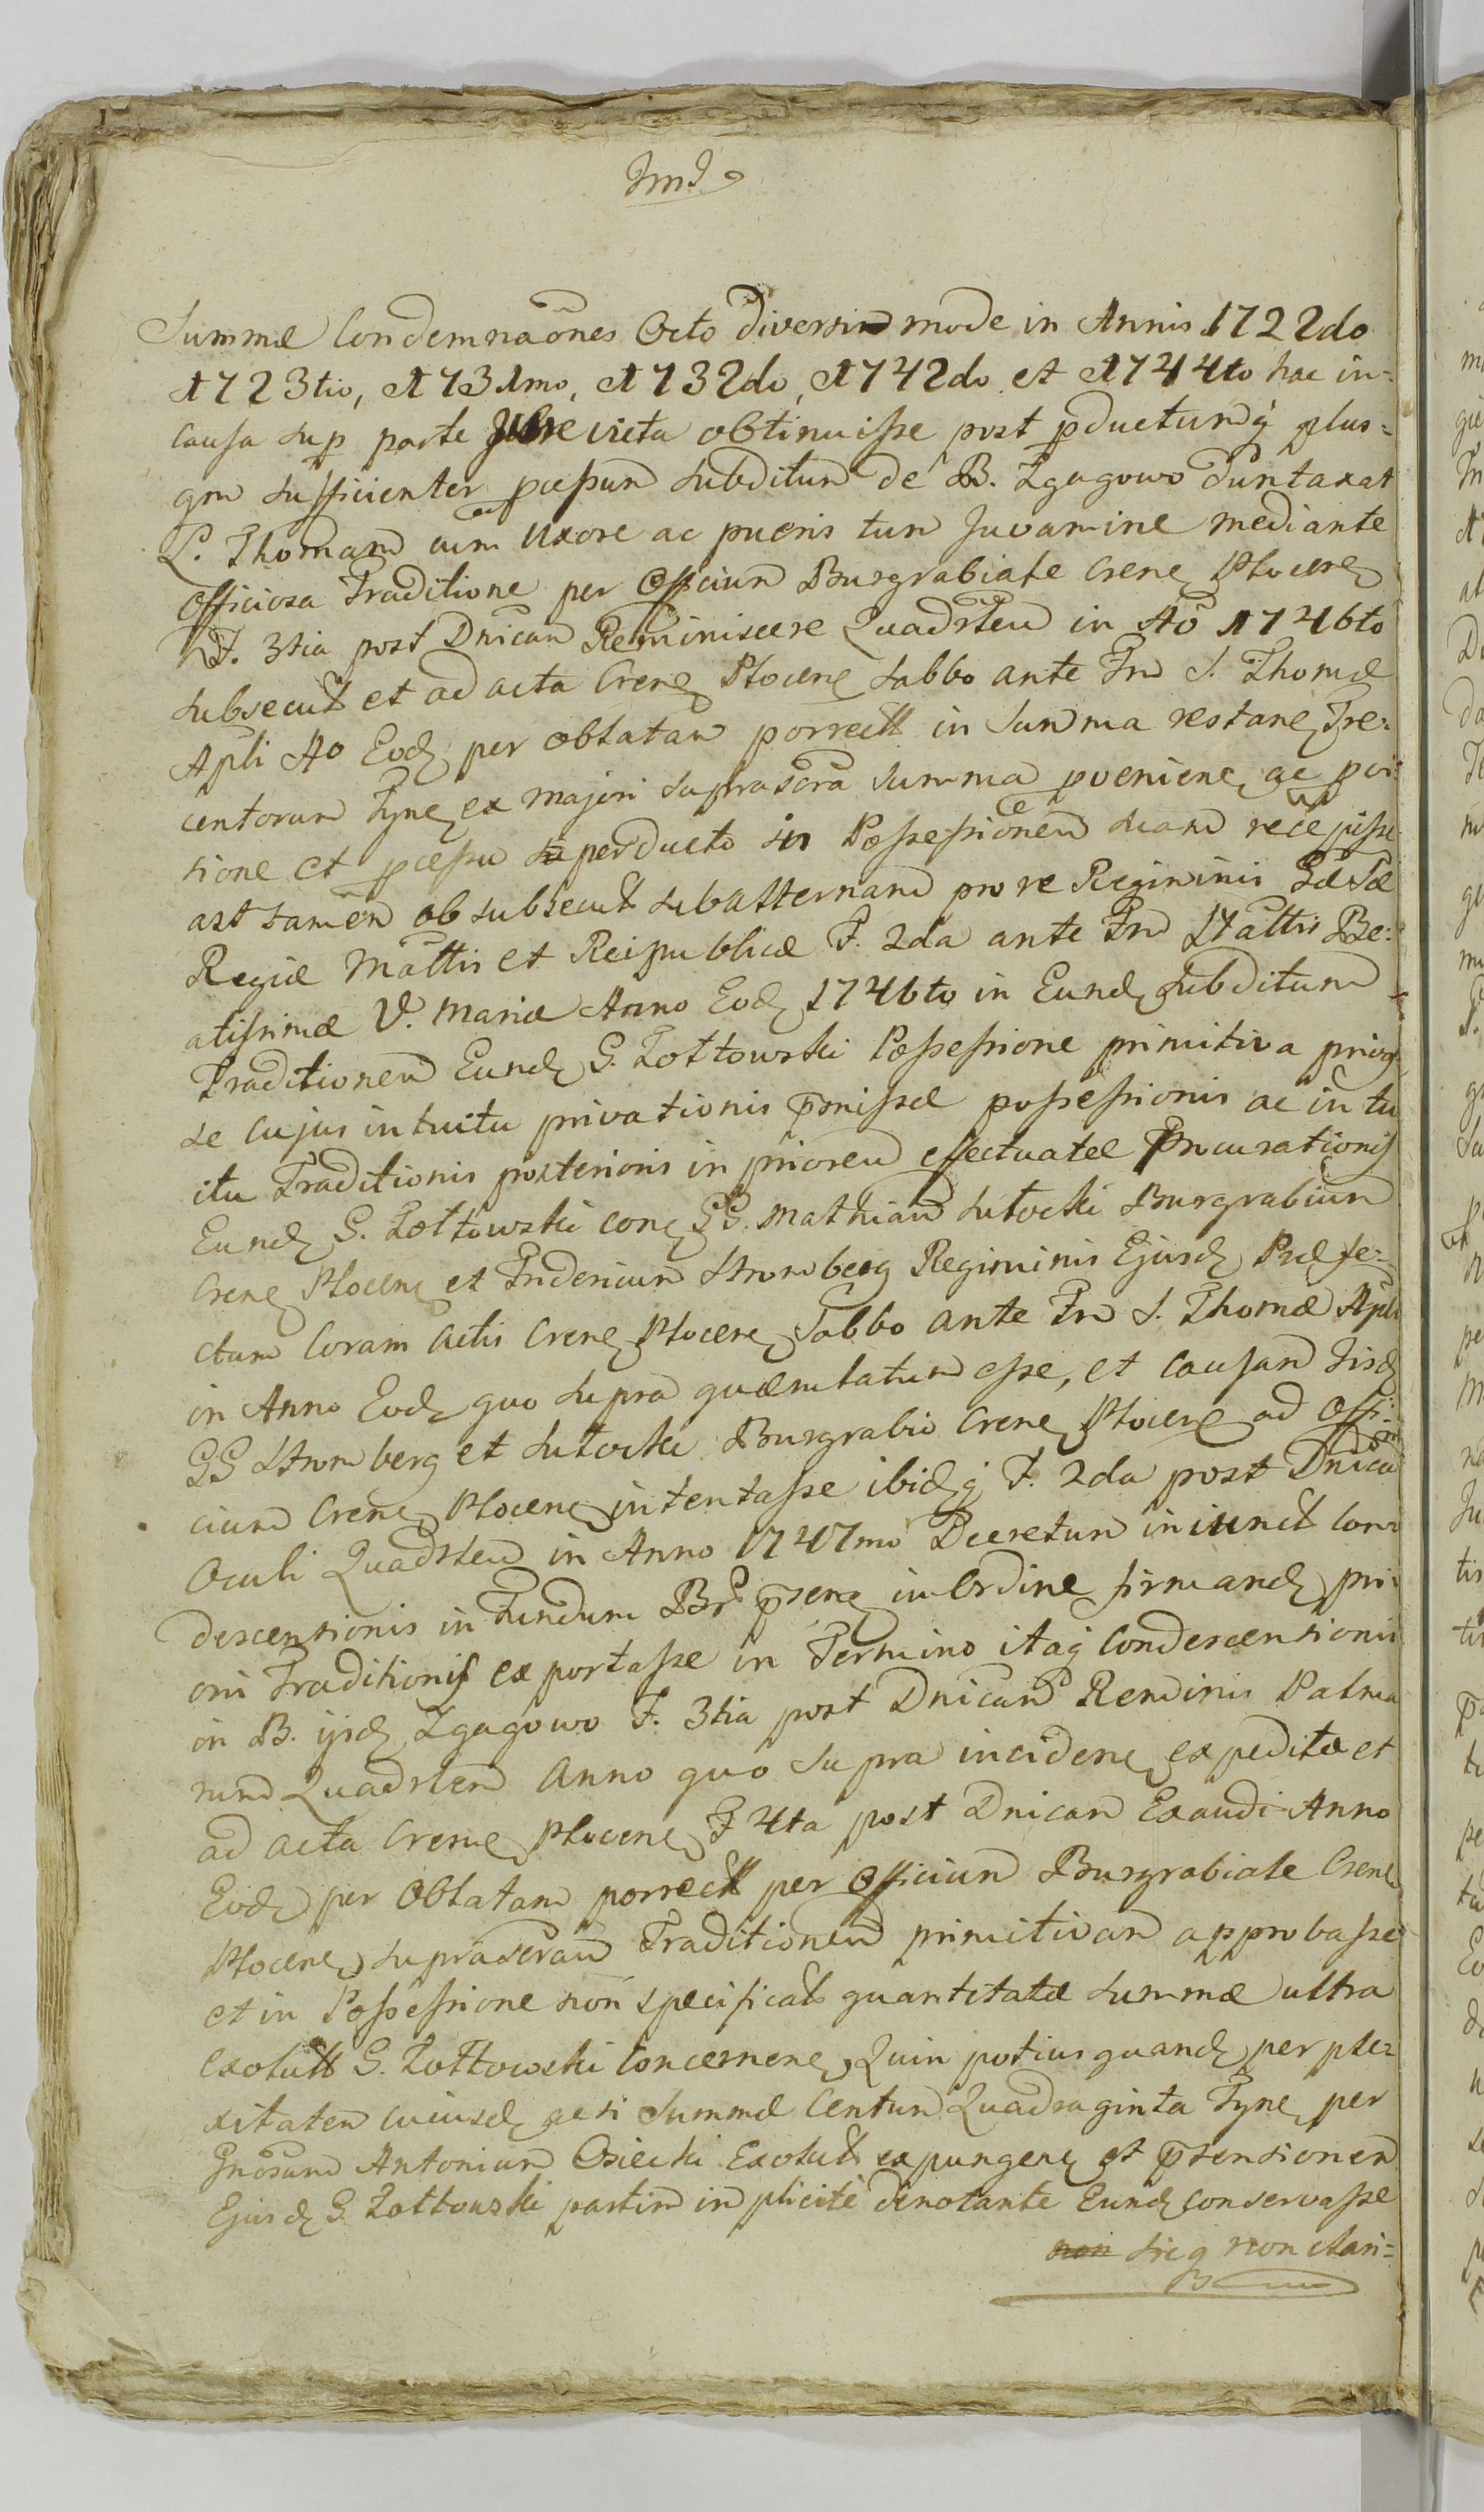 Summæ Condemnaõnes Octo diversim̃ mode in Annis 1722do
1723tio, 1731mo, 1732do, 1742do et 1744to hac in=
causa sup parte Jure victa obtinuisse post pductumq̃ plus=
qm sufficienter pcessum subditum de B. Zgagowo duntaxat
L. Thomam cum Uxore ac pueris tum Juvamine mediante
Officiosa Traditione per Officium Burgrabiale Crens Plocens
F. 3tia post Dnicam Reminiscere Quadrlem in Ao 1746to
subsecut et ad acta Crens Plocens Sabbo ante Fm S. Thomæ
Apli Ao Eod per oblatam porrect in Summa restane Tre=
centorum Tyne ex majori suprascra Summa pveniene ac poi=
tione et pcessu superducto in Possessionem suam recepisse
ast tamen ob subsecut subalternam pro re Regiminis Sæ Sæ
Regiæ Mattis et Reipublicæ F. 2da ante Fm Nattis Be=
atissimæ V. Mariæ Anno Eod 1746to in Eund subditum
Traditionem Eund G. Zołtowski Possessione primitiva
se cujus intuitu privationis p̃missæ possessionis ac intu
itu Traditionis posterioris in priorem effectuatæ Procurationis
Eund G. Zołtowski cone GG. Mathiam Lutocki Burgrabium
Crens Plocens et Fridericum Stromberg Regiminis Ejusd Præfe=
ctum Coram Actis Crens Plocens Sabbo ante Fm S. Thomæ Apli
in Anno Eod quo supra quærulatum esse, et causam Iisd
GG Stromberg et Lutocki Burgrabio Crens Plocens ad Offi=
cium Crens Plocens intentasse ibidq̃ F. 2da post Dnicam
Oculi Quadrlem in Anno 1747mo Decretum iniunct Con=
descensionis in fundum Br. p̃sene in Ordine firmand pri=
oris Traditionis exportasse in Termino itaq̃ Condescensionis
in B. ijsd Zgagowo F. 3tia post Dnicam Palma
rum Quadrlem Anno quo supra incidene expeditæ et
ad acta Crens Plocens F 4ta post Dnicam Exaudi Anno
Eod per Oblatam porrect per Officium Burgrabiale Crens
Plocens suprascram Traditionem primitivam approbasse
et in Possessione non specificat quantitatæ summæ ultra
exolutt G. Zołtowski concernene, Quin potius quand perple=
xitatem cuiusd acsi Summæ Centum Quadraginta Tyne per
Gnosum Antonium Osiecki Exolut expungene et p̃tensionem
Ejusd G. Zołtowski partim implicite denotante Eund conservasse
sicq non clari=